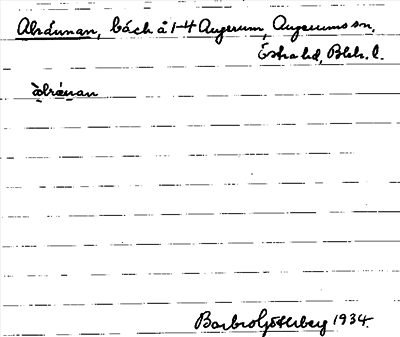 Alråunan, bäck å 1-4 Augerum, Augerums sn,
Östra hd, Blek. l.
àlrå̱ṵnan
Barbro Götberg 1934.